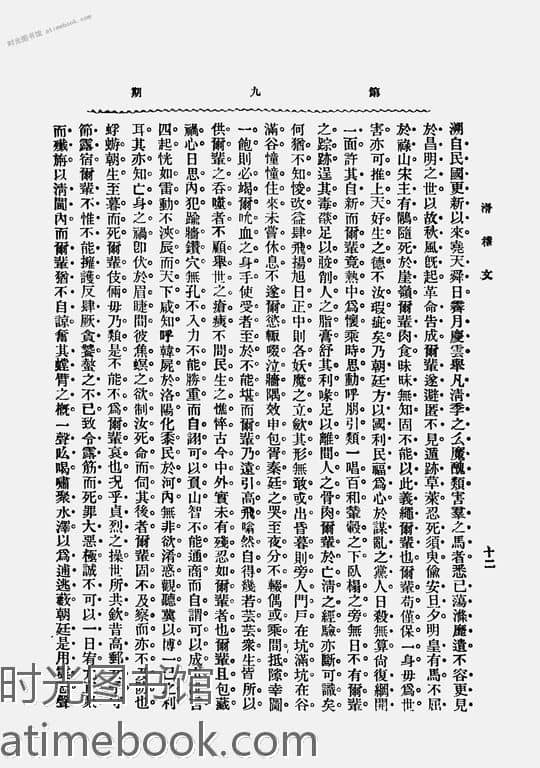 时光图书馆 atimebook.com
第九期
滑稽文
十二
溯自民國更新以來堯天舜日霽月慶雲舉凡清季之么魔醜類害羣之馬者悉已蕩滌靡遺不容更見
於昌明之世以故秋風旣起革命告成爾輩遂避匿不見遁跡草萊忍死須臾儉安旦夕明皇有馬不屈
於祿山宋主有鷴隨死於崖嶺爾輩肉食昧昧無知固不能以此義繩爾輩也爾輩苟僅保一身毋爲世
害亦可推上天好生之德不汝瑕疵矣乃朝廷方以國利民福爲心於謀亂之黨人日殺無算尙復網開
一面許其自新而爾輩竟熱中爲懷乘時思動呼朋引類一唱百和輦轂之下臥榻之旁無日不有爾輩
之踪跡逞其毒燄足以朘削人之脂膏舒其利喙足以離間人之骨肉爾輩於亡清之經驗亦斷可識矣
何猶不知悛改益肆飛揚旭日正中則各妖魔之立歛其形無敢或出昏暮則旁人門戶在坑滿坑在谷
滿谷憧憧往來未嘗休息不遂爾慾輒啜泣牆隅效申包胥秦廷之哭至夜分不輟偶或乘間抵隙幸圖
一飽則必竭爾吮血之身手使受者至於不能堪而爾輩乃遠引高飛嗡然自得幾若芸芸衆生皆所以
供爾輩之吞噬者不顧舉世之瘡痍不問民生之憔悴古今中外實未有殘忍如爾輩者也爾輩且包藏
禍心日思內犯踰牆鑽穴無孔不入力不能勝重而自詡可以負山智不能通商而自謂可以成
四起恍如雷動不浹辰而天下咸知呼韓屍於洛陽化黍民於河內無非欲淆惑觀聽冀以博一己之利
耳其亦知亡身之禍卽伏於眉睫間彼焦螟之欲制汝死命而伺其後者爾輩固不及察而亦不
蜉蝣朝生至暮而死爾輩伎倆毋乃類是不能不爲爾輩哀也况乎貞烈之操世所共欽昔高郵
節露宿爾輩不惟不能擁護反肆厥貪饕螫之不已致令露筋而死罪大惡極誠不可以一日宥
而殲旃以清閫內而爾輩猶不自諒奮其螳臂之概一聲吆喝嘯聚水澤以爲逋逃藪朝廷是用
时光图书馆
atimebook.com